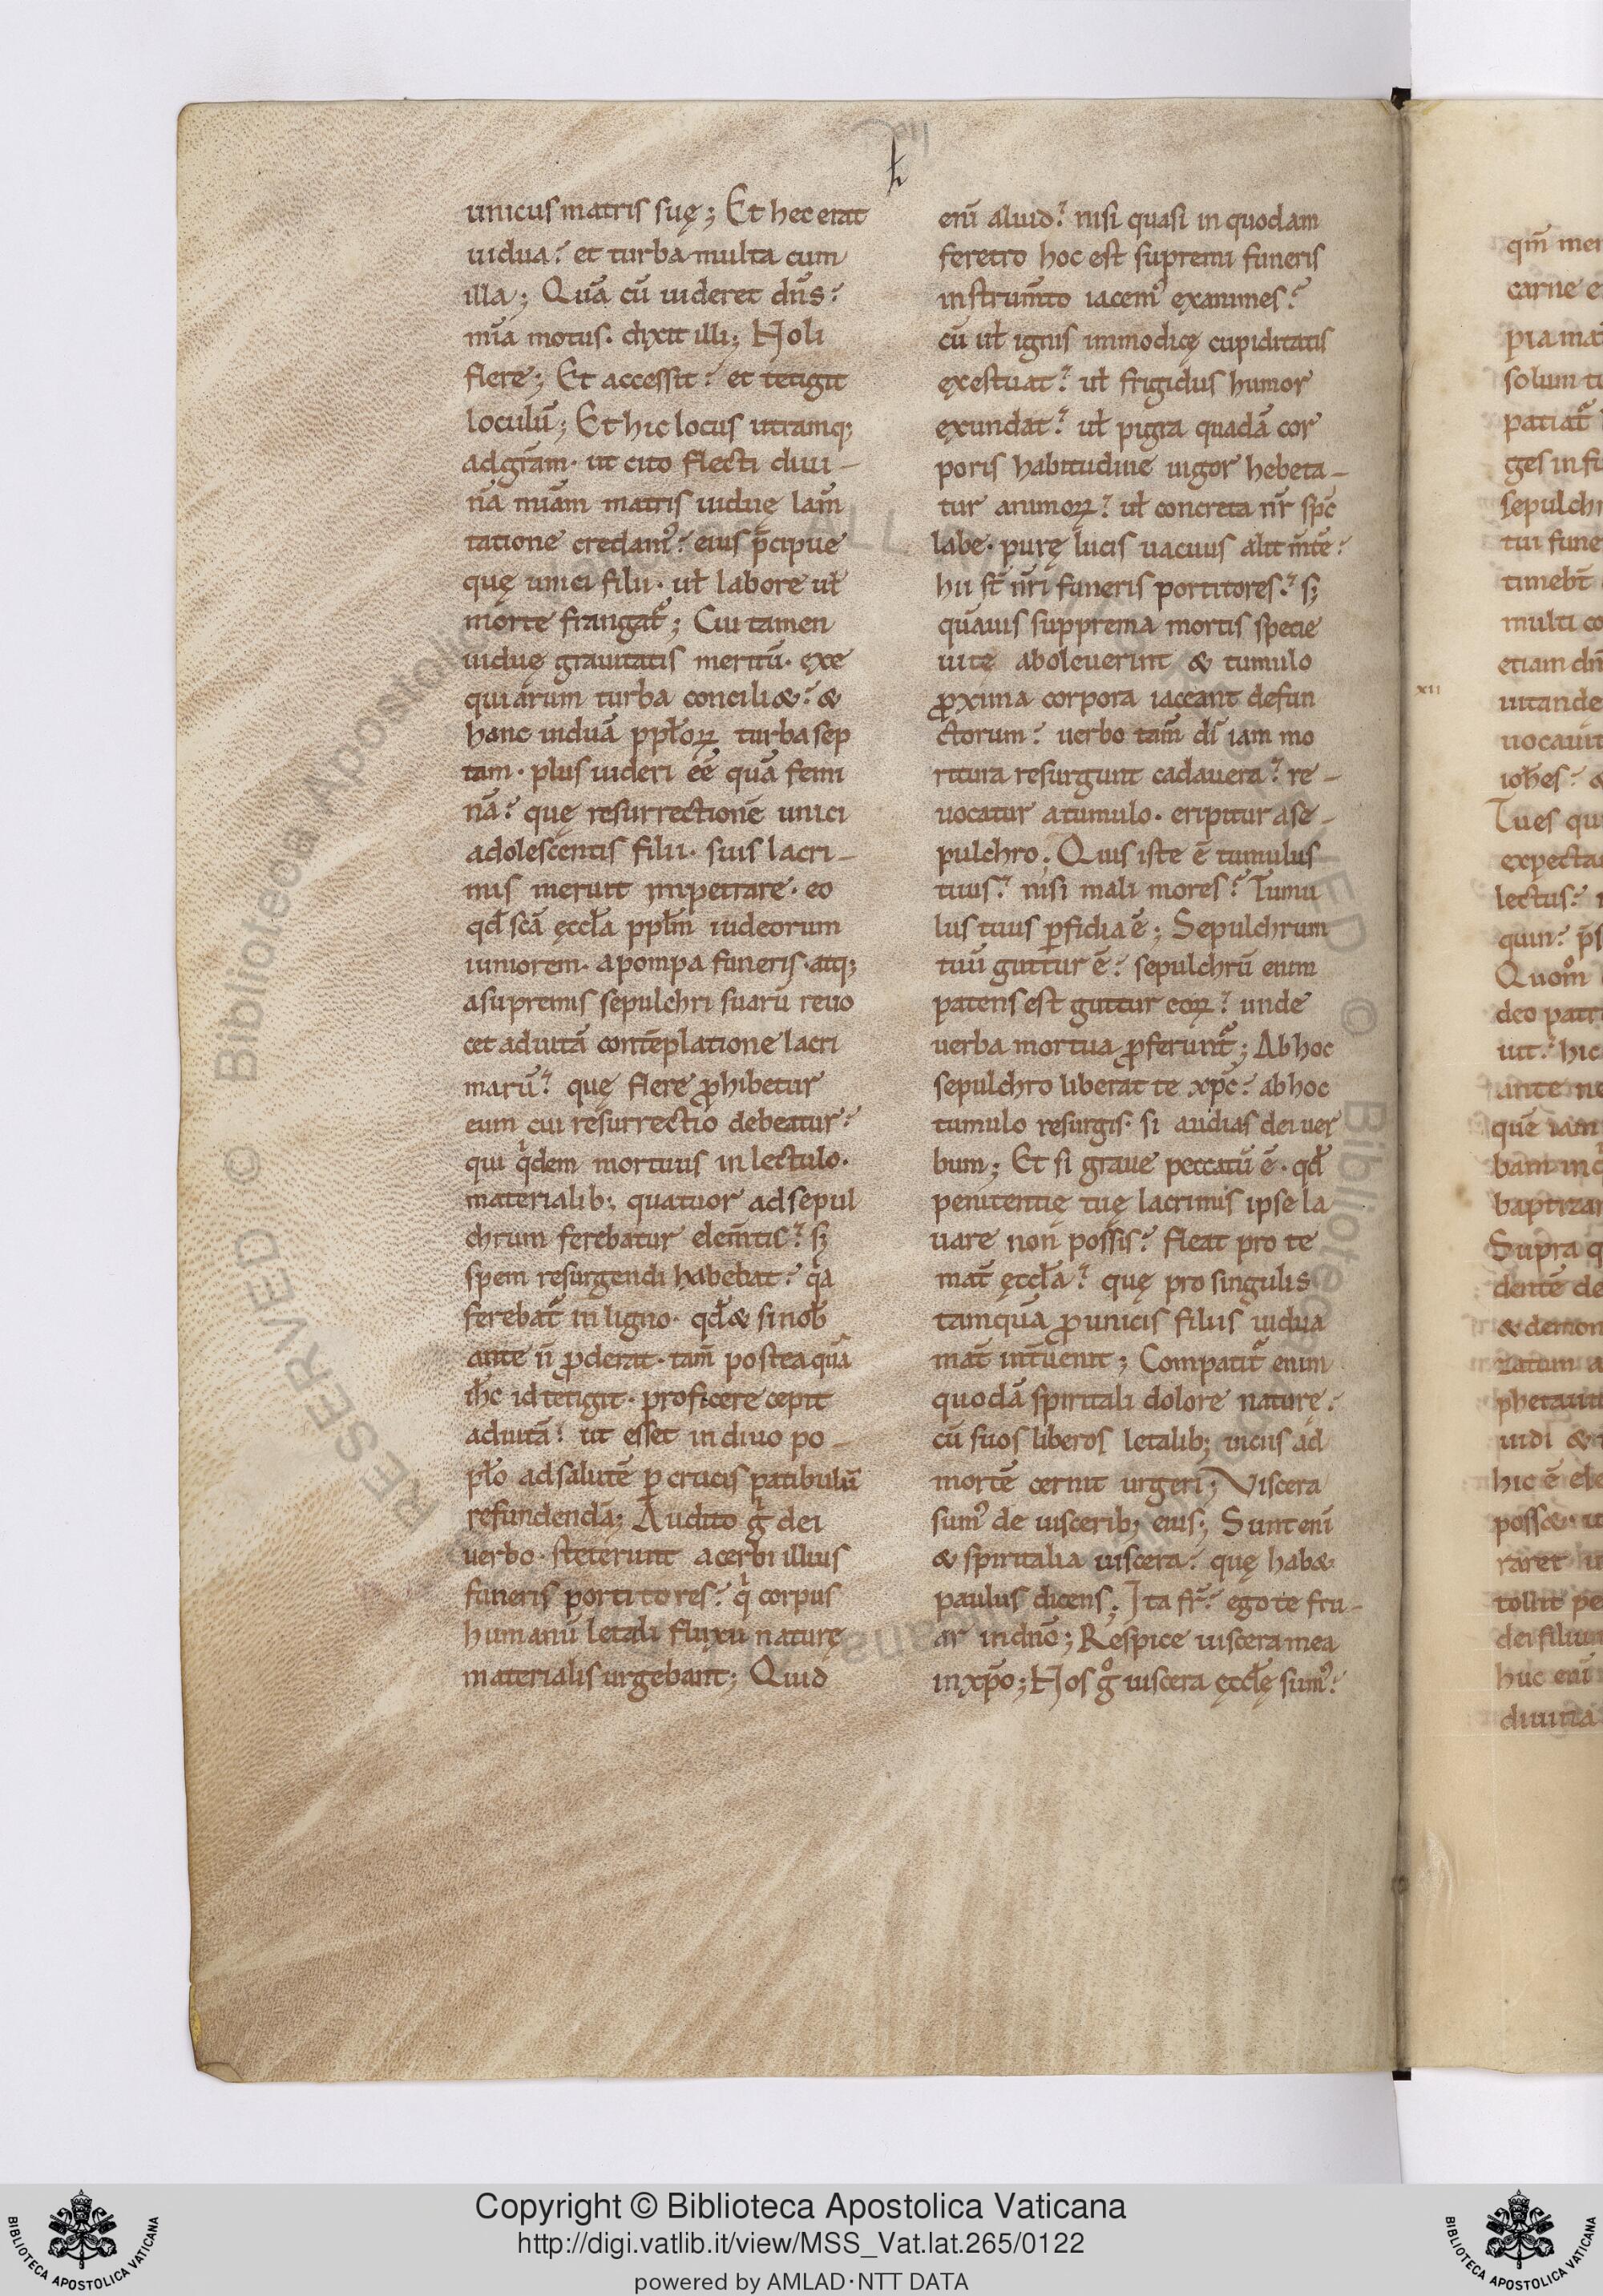 unicus matris suę; Et hec erat
uidua? et turba multa cum
illa; Quā cū uideret dn̄s?
mīa motus. dixit illi; Noli
flere; Et accessit? et tetigit
loculū; Et hic locus utramq;
ad gr̄am. ut cito flecti diui-
nā mīam matris uiduę lam̄
tatione credam᾽? eius p̄cipue
quę unici filii. uł labore uł
morte frangat᷑; Cui tamen
uiduę grauitatis meritū. exe
quiarum turba concili&? &
hanc uiduā ppłoꝝ turba sep
tam. plus uideri eē quā femi
nā? quę resurrectionē unici
adolescentis filii. suis lacri-
mis meruit impetrare. eo
qđ scā ęccła ppłm iudeorum
iuniorem. a pompa funeris. atq;
a supremis sepulchri suarū reuo
cet ad uitā contēplatione lacri
marū? quę flere ꝓhibetur
eum cui resurrectio debeatur?
qui qͥdem mortuus in lectulo.
materialib; quatuor ad sepul
chrum ferebatur elem̄tis? sꝫ
spem resurgendi habebat? qͣa
ferebat᷑ in ligno. qđ & si nob̄
ante n̄ ꝓderat. tam̄ postea quā
ih̄c id tetigit. proficere cepit
ad uitā? ut esset indiuo po-
pło ad salutē ꝑ crucis patibulū
refundendā; Audito gͥ dei
uerbo. steterunt acerbi illius
funeris portitores? qͥ corpus
humanū letali fluxu naturę
materialis urgebant; Quid
enī aliud? nisi quasi in quodam
feretro hoc est supremi funeris
instrum̄to iacem᾽ exanimes?
cū uł ignis immodicę cupiditatis
exestuat? uł frigidus humor
exundat? uł pigra quadā cor
poris habitudine uigor hebeta-
tur animoꝝ? uł concreta nr̄ sp̄c
labe. purę lucis uacuus alit m̄te?
hii st̄ nr̄i funeris portitores? sꝫ
quāuis supprema mortis specie
uitę aboleuerint & tumulo
ꝓxima corpora iaceant defun
ctorum? uerbo tam̄ dī iam mo
ritura resurgunt cadauera? re-
uocatur a tumulo. eripitur a se-
pulchro. Quis iste ē tumulus
tuus? nisi mali mores? Tumu
lus tuus ꝑfidia ē; Sepulchrum
tuū guttur ē? sepulchrū enim
patens est guttur eoꝝ? unde
uerba mortua ꝓferunt᷑; Ab hoc
sepulchro liberat te xp̄c? ab hoc
tumulo resurgis. si audias dei uer
bum; Et si graue peccatū ē. qđ
penitentię tuę lacrimis ipse la
uare non possis? fleat pro te
mat̄ ęccła? quę pro singulis
tamquā ꝓ unicis filiis uidua
mat̄ int̄uenit; Compatit᷑ enim
quodā spiritali dolore naturę?
cū suos liberos letalib; uiciis ad
mortē cernit urgeri; Viscera
sum᾽ de uisceribꝫ eius; Sunt enī
& spiritalia uiscera? quę hab&
paulus dicens; Ita fr̄? ego te fru-
ar in dn̄o; Respice uiscera mea
in xp̄o; Nos gͦ uiscera ęccłę sum᾽?
qm̄
carne
solum
sepulch
xii
Tu es
Supra
& demon
hic ē
dei filium
huc enī
Copyright © Biblioteca Apostolica Vaticana
http://digi.vatlib.it/view/MSS_Vat.lat.265/0122
powered by AMLAD·NTT DATA
BIBLIOTECA APOSTOLICA VATICANA
BIBLIOTECA APOSTOLICA VATICANA